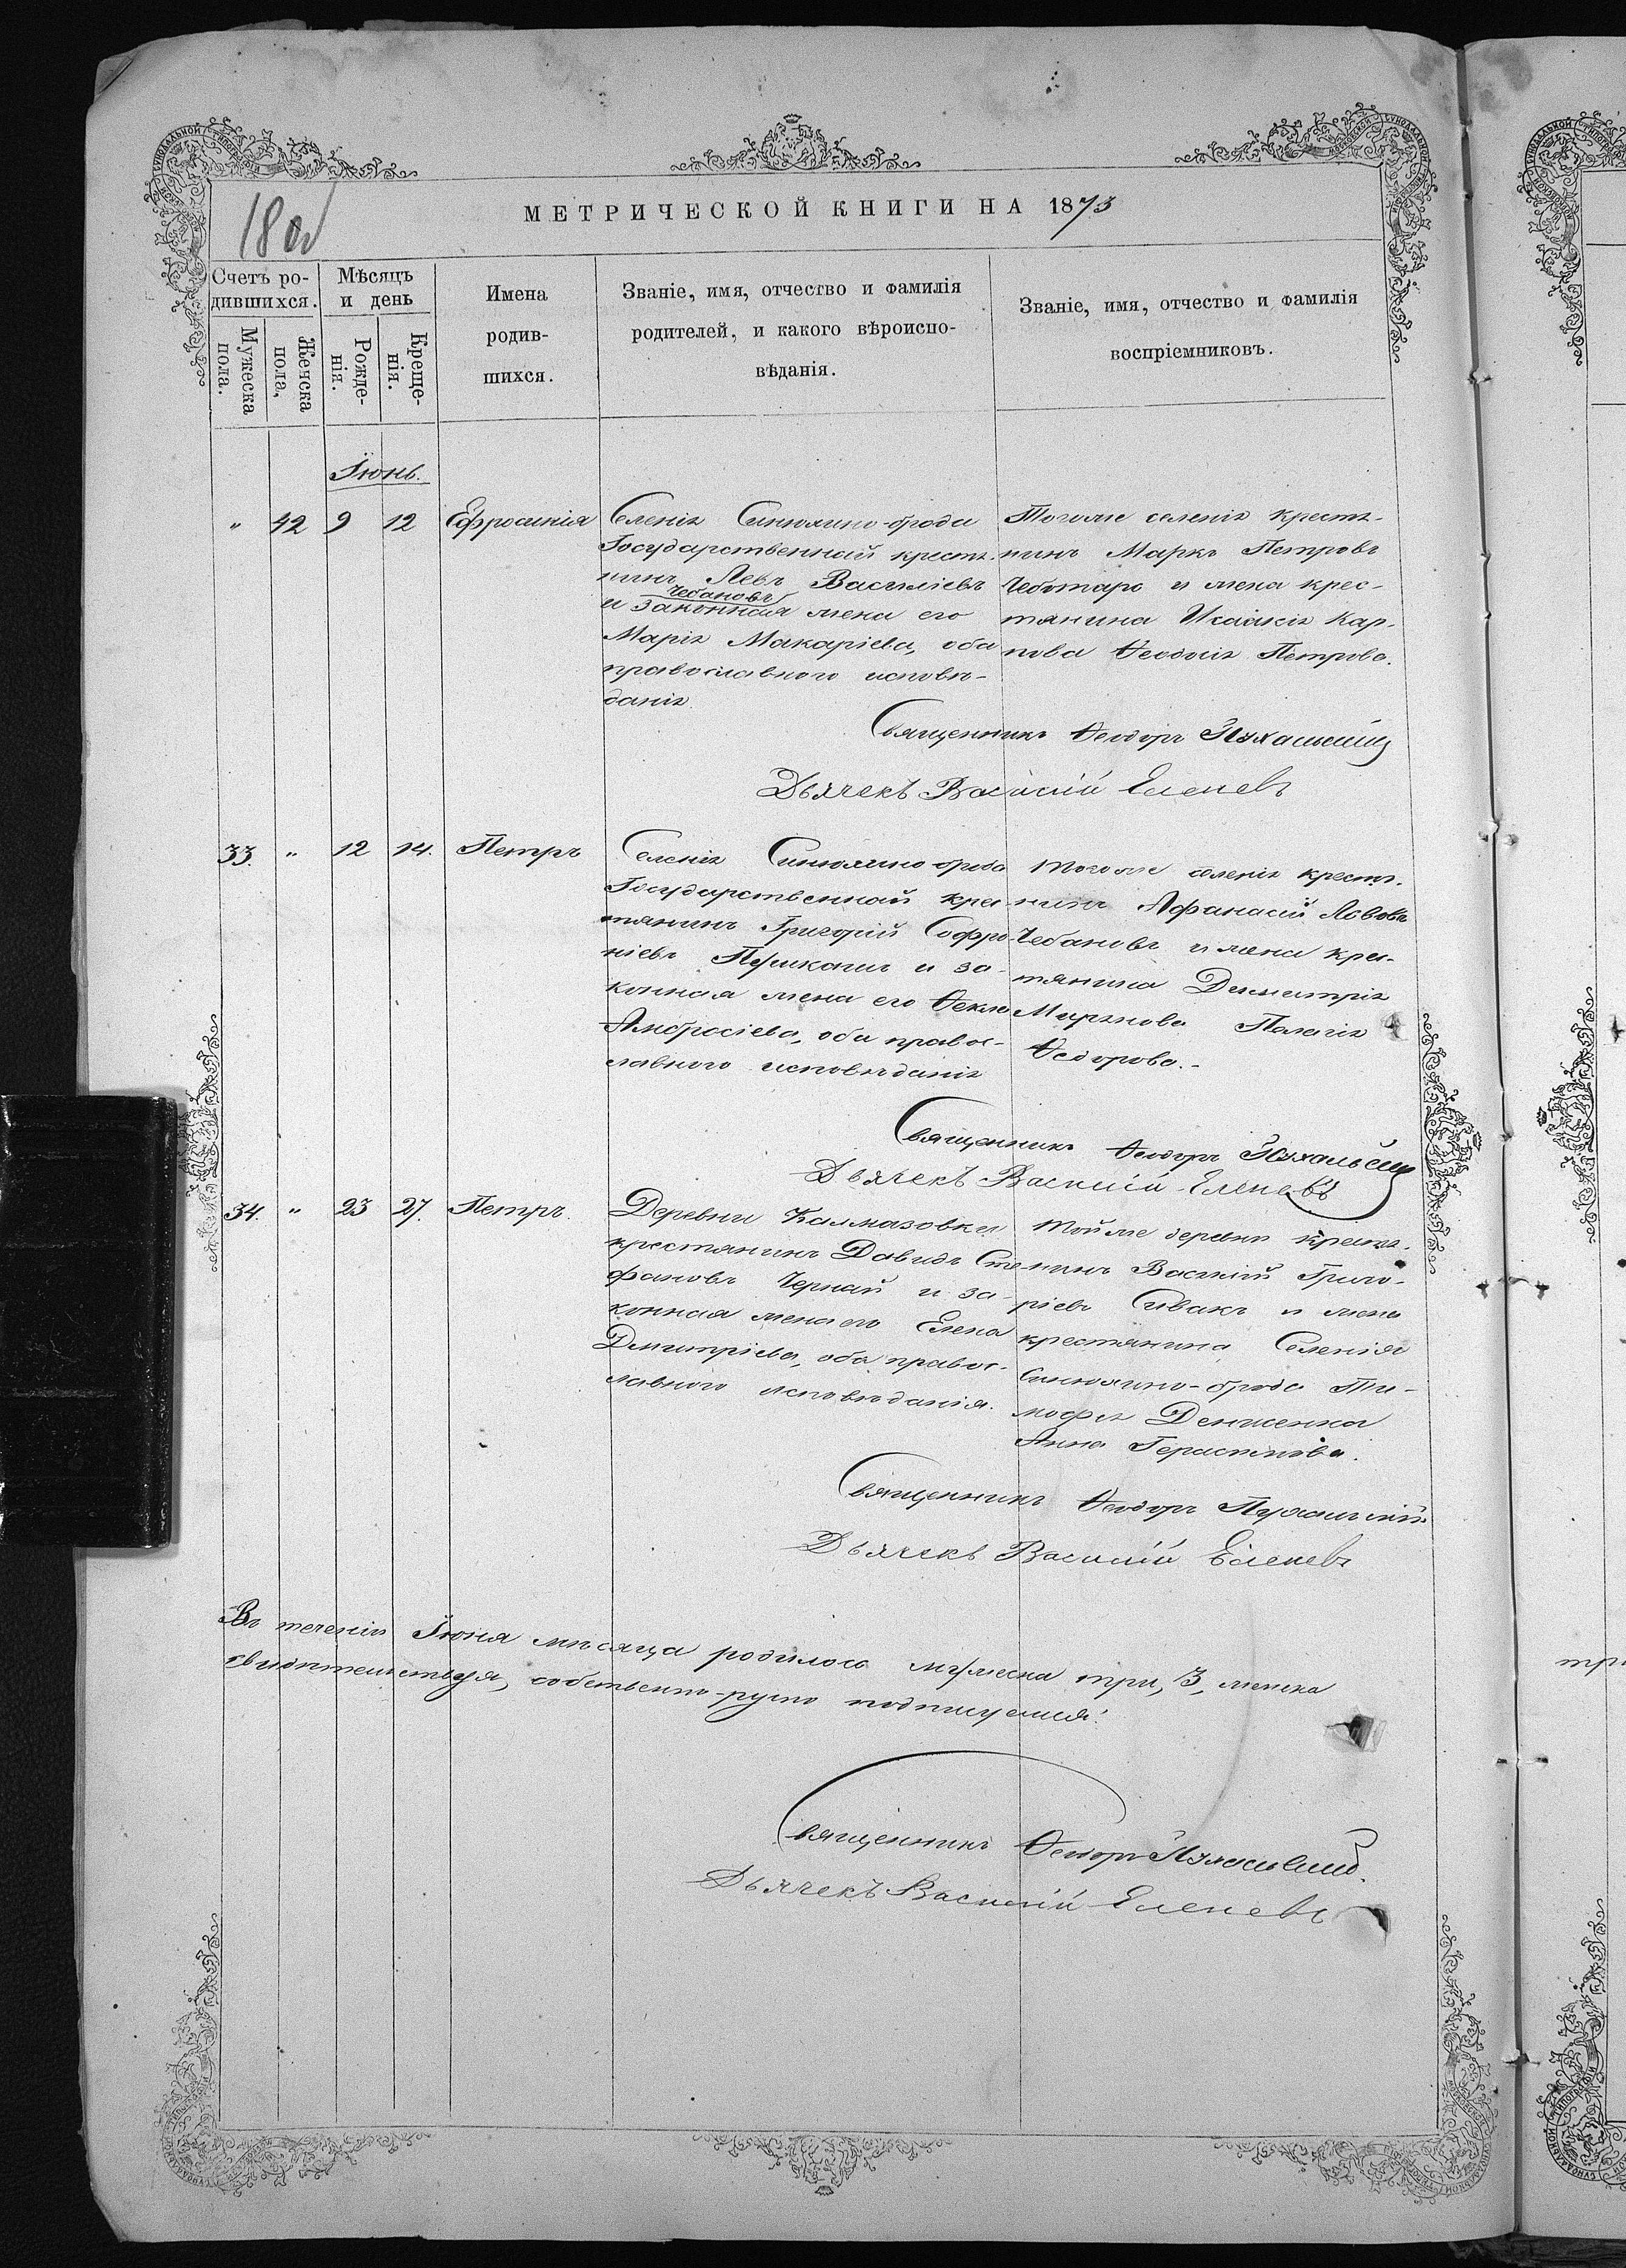 МЕТРИЧЕСКОЙ КНИГИ НА 1873
180
Счетъ ро-
дившихся.
Мужеска
пола.
Женска
пола,
Мѣсяцъ
и день
Рожде-
нія.
Креще-
нія.
Имена
родив-
шихся.
Званіе, имя, отчество и фамилія
родителей, и какого вѣроиспо-
вѣданія.
Званіе, имя, отчество и фамилія
воспріемниковъ.
Іюнь.
" 42 9 12 Ефросинія
Селенія Синюхино-брода
Государственный кресть-
нинъ Левъ Василіевъ
Чебановъ
и законная жена его
Марія Макаріева, оба
православного исповѣ-
данія
Тогоже селенія кресть-
нинъ Маркъ Петровъ
Чеботаръ и жена крес-
тянина Исаакія Кар-
пова Ѳеодосія Петрова.
Священникъ Ѳеодоръ Пухальскій
Дьячекъ Василій Еленевъ
33. " 12 14. Петръ
Селенія Синюхино брода
Государственный крес-
тянинъ Григорій Софро-
ніевъ и за-
конная жена его Ѳекла
Амбросіева, оба правос-
лавного исповѣданія
Тогоже селенія кресть-
нинъ Афанасій Львовъ
Чебановъ и жена крес-
тянина Димитрія
Пелагія
Ѳедорова.-
Священникъ Ѳеодоръ Пухальскій
Дьячекъ Василій Еленевъ
34. " 23 27. Петръ.
Деревни Калмазовки
крестянинъ Давидъ Сте-
фановъ Черный и за-
конная жена его Елена
Дмитріева, оба правос-
лавного исповѣданія.
Тойже деревни кресть-
нинъ Василій Григо-
ріевъ Сивакъ и жена
крестянина Селенія
Синюхино-брода Ти-
мофея Денисенка
Анна Герасимова.
Священникъ Ѳеодоръ Пухальскій
Дьячекъ Василій Еленевъ
Въ теченіи Іюня мѣсяца родилось мужеска три, 3, женска
свидѣтельствуя, собственно-ручно подписуемся:
Священникъ Ѳеодоръ Пухальскій.
Дьячекъ Василій Еленевъ